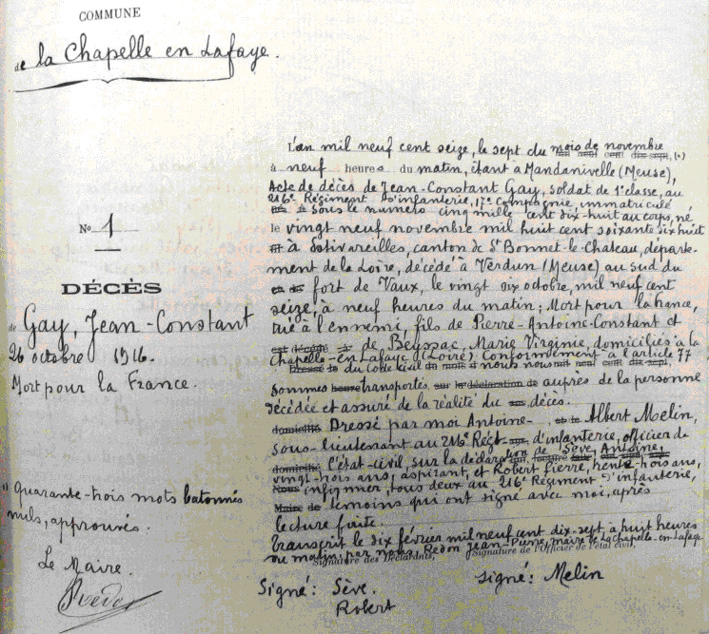 COMMUNE
de la Chapelle en Lafaye.
No 1
DÉCÈS
de Gay, Jean-Constant
26 octobre 1916.
Mort pour la France.
(1) Quarante-trois mots batonnés
nuls, approuvés.
Le Maire.
L'an mil neuf cent seize, le sept du mois de novembre
à neuf heures du matin, étant à Mandanivelle (Meuse),
Acte de décès de Jean-Constant Gay, soldat de 1e classe, au
216e Régiment d'infanterie, 17e Compagnie, immatriculé
sous le numéro cinq mille cent dix-huit au corps, né
le vingt neuf novembre mil huit cent soixante six huit
à Estivareilles, canton de St Bonnet-le-Chateau, départe-
ment de la Loire, décédé à Verdun (Meuse) au sud du
fort de Vaux, le vingt six octobre, mil neuf cent
seize, à neuf heures du matin; Mort pour la France,
tué à l'ennemi, fils de Pierre-Antoine-Constant et
de Beyssac, Marie Virginie, domiciliés à la
Chapelle-en-Lafaye (Loire). Conformément à l'article 77
du Code civil nous nous
sommes transportés auprès de la personne
décédée et assuré de la réalité du décès.
Dressé par moi Antoine- Albert Melin,
sous-lieutenant au 216e Régt d'infanterie, officier de
l'état-civil, sur la déclaration de Sève, Antoine,
vingt-trois ans, aspirant, et Robert Pierre, trente-trois ans,
infirmier, tous deux au 216e Régiment d'infanterie,
témoins qui ont signé avec moi, après
lecture faite.
Transcrit le dix février mil neuf cent dix-sept, à huit heures
du matin, par nous, Redon Jean-Pierre, maire de La Chapelle-en-Lafaye
Signature des Déclarants, Signature de l'Officier de l'état civil,
Signé: Sève. signé: Melin
Robert